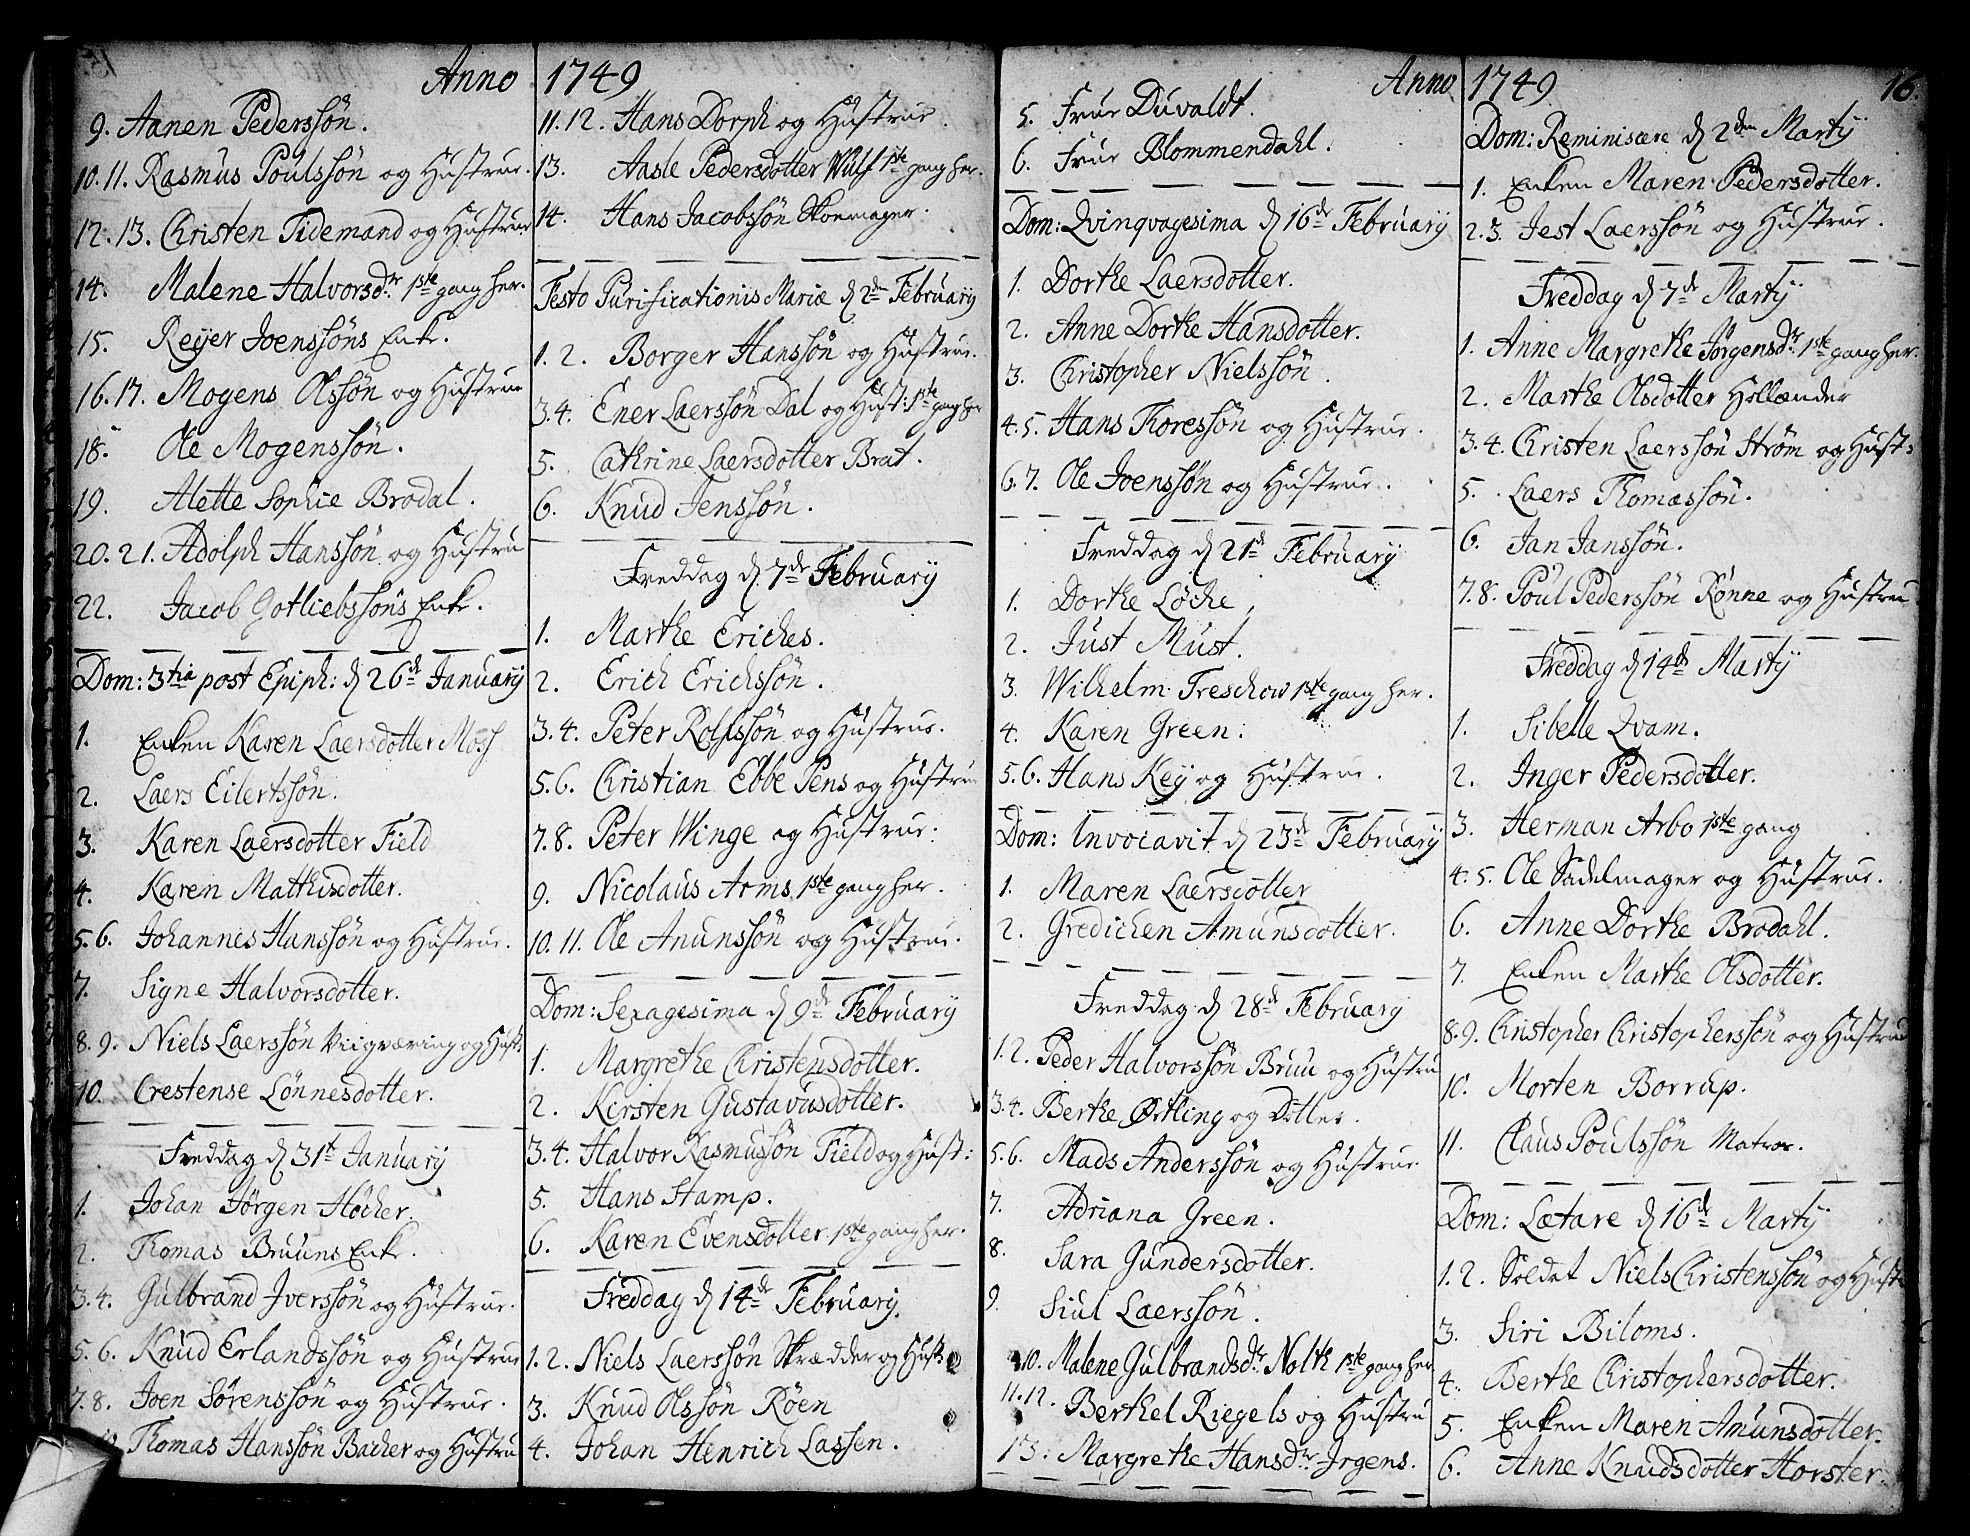 Anno 1749
9. Aanen Pederssön.
10. 11. Rasmus Poulssön og Hustrue.
12. 13. Christen Tidemand og Hustrue
14. Malene Halvorsdr. 1ste gang her.
15. Reyer Joenssöns Enke.
16. 17. Mogens Olssön og Hustrue
18. Ole Mogenssön.
19. Alette Sophie Brodal.
20. 21. Adolph Hanssön og Hustru
22. Jacob Gotliebssöns Enke.
Dom: 3tia post Epiph: d. 26de January
1. Enken Karen Laersdotter Moss
2. Laers Eilertssön.
3. Karen Laersdotter Field
4. Karen Mathisdotter.
5. 6. Johannes Hanssön og Hustrue.
7. Signe Halvorsdotter.
8. 9. Niels Laerssön Viigværing og Hust:
10. Crestense Lönnesdotter.
Freddag d. 31t January
1. Johan Jörgen Höcher.
2. Thomas Bruuns Enke.
3. 4. Gulbrand Iverssön og Hustrue.
5. 6. Knud Erlandssön og Hustrue
7. 8. Joen Sörenssön og Hustrue.
Thomas Hanssön Bacher og Hustru
11. 12. Hans Dorph og Hustrue.
13. Aasle Pedersdotter Wulf 1ste gang her.
14. Hans Jacobssön Skoemager.
Festo Purificationis Mariæ d. 2de February
1. 2. Borger Hanssön og Hustrue.
3. 4. Ener Laerssön Dal og Hust: 1ste gang her
5. Cathrine Laersdotter Brat.
6. Knud Jenssön.
Freddag d. 7de February
1. Marthe Eriches.
2. Erich Erichssön.
3. 4. Peter Rolfssön og Hustrue.
5. 6. Christian Ebbe Pens og Hustrue
7. 8. Peter Winge og Hustrue:
9. Nicolaus Arms 1ste gang her.
10. 11. Ole Anunssön og Hustrue.
Dom: Sexagesima d. 9de February
1. Margrethe Christensdotter.
2. Kirsten Gustavusdotter.
3. 4. Halvor Rasmussön Field og Hust:
5. Hans Stamp.
6. Karen Evensdotter 1ste gang her.
Freddag d. 14de February.
1. 2. Niels Laerssön Skrædder og Hust:
3. Knud Olssön Röen
4. Johan Henrich Lassen.
Anno 1749 16.
5. Frue Duvaldt.
6. Frue Blommendahl.
Dom: Qvinqvagesima d. 16de February
1. Dorthe Laersdotter.
2. Anne Dorthe Hansdotter.
3. Christopher Nielssön.
4. 5. Hans Thoressön og Hustrue.
6. 7. Ole Joenssön og Hustrue.
Freddag d. 21de February
1. Dorthe Löche,
2. Just Must.
3. Wilhelm Treschow 1ste gang her.
4. Karen Green.
5. 6. Hans Key og Hustrue.
Dom: Invocavit d. 23de February
1. Maren Laersdotter
2. Gredichen Amunsdotter.
Freddag d. 28de February
1. 2. Peder Halvorssön Bruu og Hustru
3. 4. Berthe Örtling og Dotter.
5. 6. Mads Anderssön og Hustrue
7. Adriana Green.
8. Sara Gundersdotter.
9. Siul Laerssön.
10. Malene Gulbrandsdr. Nolth 1ste gang her
11. 12. Berthel Riegels og Hustru
13. Margrethe Hansdr. Irgens.
Dom: Reminiscere d. 2den Marty
1. Enken Maren Pedersdotter.
2. 3. Jest Laerssön og Hustrue.
Freddag d. 7de Marty
1. Anne Margrethe Jörgensdr. 1ste gang her.
2. Marthe Olsdotter Hollænder
3. 4. Christen Laerssön Ström og Hust:
5. Laers Thomassön.
6. Jan Janssön.
7. 8. Poul Pederssön Rönne og Hustru
Freddag d. 14de Marty
1. Sibelle Qvam.
2. Inger Pedersdotter.
3. Herman Arbo 1ste gang
4. 5. Ole Sadelmager og Hustrue.
6. Anne Dorthe Brodahl.
7. Enken Marthe Olsdotter.
8. 9. Christopher Christopherssön og Hustrue
10. Morten Borrup.
11. Claus Poulssön Matros.
Dom: Lætare d. 16de Marty
1. 2. Soldat Niels Christenssön og Hust
3. Siri Biloms.
4. Berthe Christophersdotter.
5. Enken Maren Amunsdotter.
6. Anne Knudsdotter Horster.